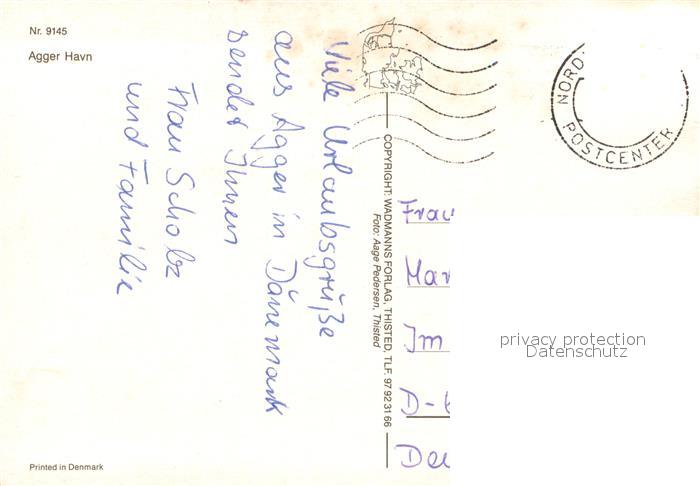 Nr. 9145
Agger Havn
Viele Urlaubsgrüße
aus Agger in Dänemark
sendet Ihnen
Frau Scholz
und Familie
COPYRIGHT: WADMANNS FORLAG, THISTED, TLF. 97 92 31 66
Foto: Aage Pedersen, Thisted
NORD
POSTCENTER
Frau
Mar
Im
D-
Deu
privacy protection
Datenschutz
Printed in Denmark